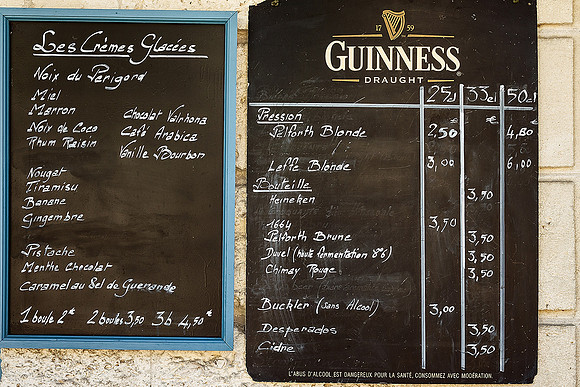 Les Crèmes Glacées
Noix du Périgord
Miel
Marron
Noix de Coco
Rhum Raisin
Chocolat Valrhona
Café Arabica
Vanille Bourbon
Nougat
Tiramisu
Banane
Gingembre
Pistache
Menthe Chocolat
Caramel au Sel de Guerande
1 boule 2€ 2 boules 3,50 3b 4,50€
17 59
GUINNESS
DRAUGHT
25cl 33cl 50cl
Pression
Pelforth Blonde 2,50 4,80
Leffe Blonde 3,00 6,00
Bouteille
Heineken 3,50
1664 3,50
Pelforth Brune 3,50
Duvel (haute fermentation 8°6) 3,50
Chimay Rouge 3,50
Buckler (sans Alcool) 3,00
Desperados 3,50
Cidre 3,50
L'ABUS D'ALCOOL EST DANGEREUX POUR LA SANTÉ, CONSOMMEZ AVEC MODÉRATION.